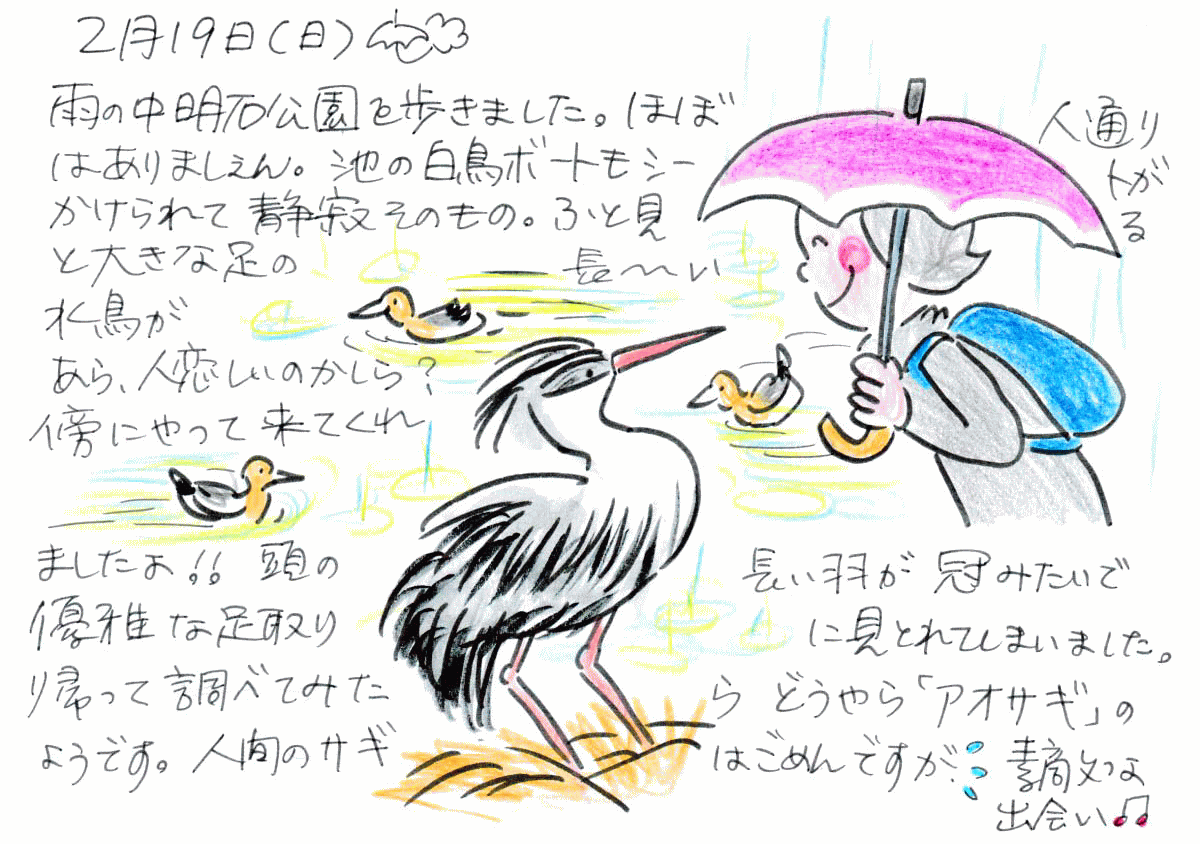 2月19日(日)
雨の中明石公園を歩きました。ほぼ 人通り
はありましぇん。池の白鳥ボートもシー トが
かけられて静寂そのもの。ふと見 る
と大きな足の 長〜〜い
水鳥が
あら、人恋しいのかしら?
傍にやって来てくれ
ましたよ!! 頭の 長い羽が 冠みたいで
優雅な足取り に見とれてしまいました。
帰って調べてみた ら どうやら「アオサギ」の
ようです。人間のサギ はごめんですが 素敵な
出会い♫